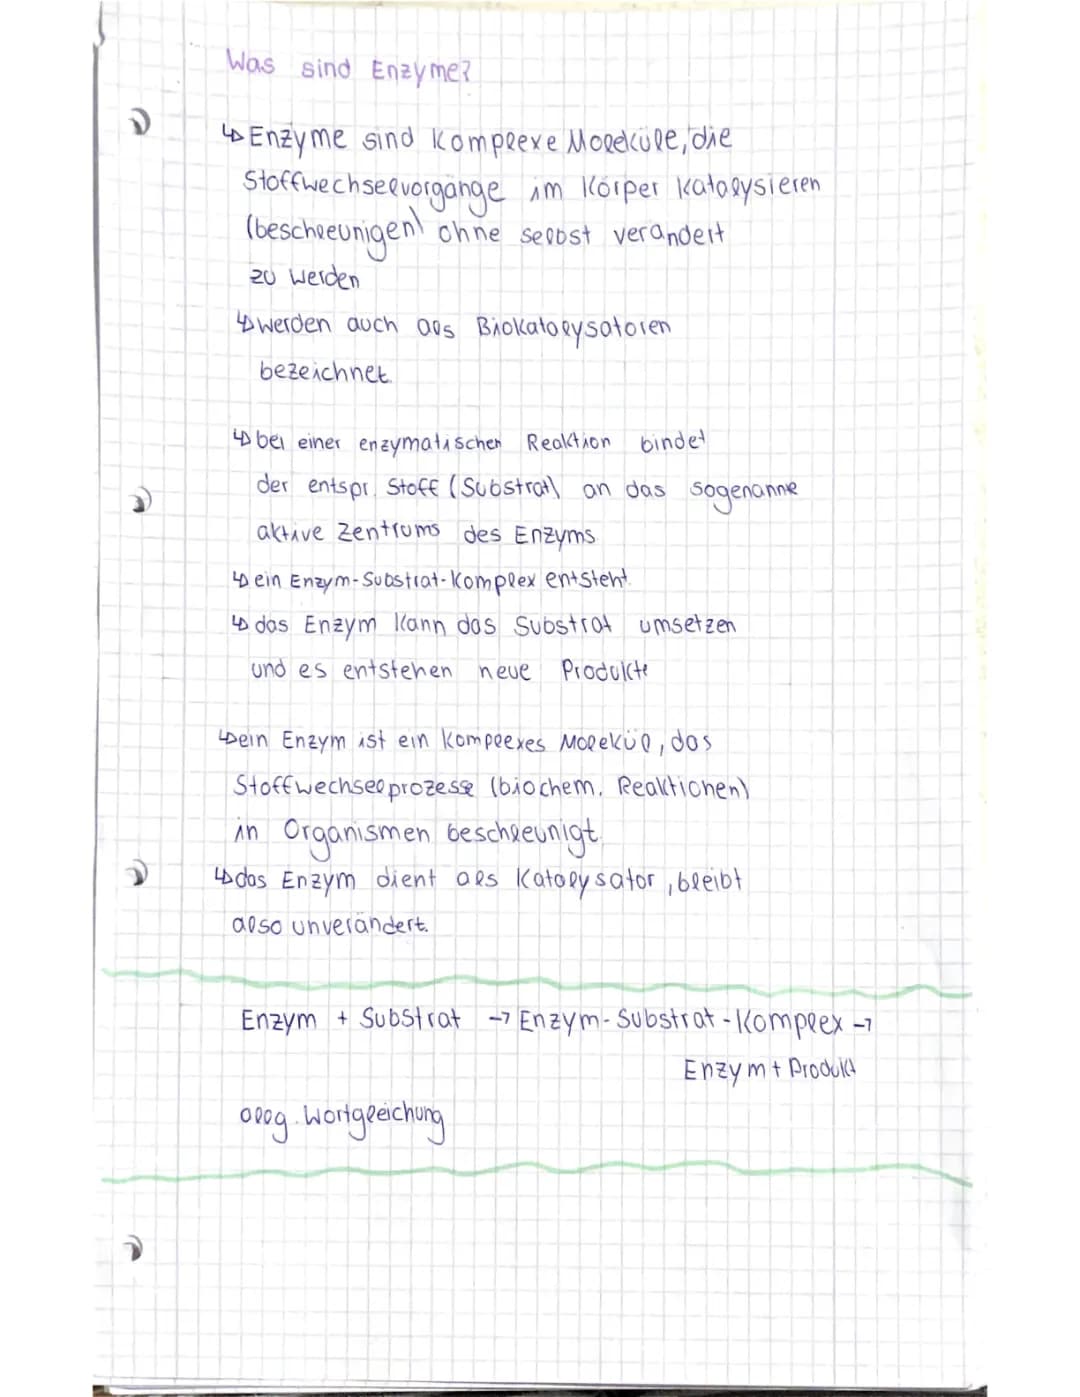 Was sind Enzyme?
↳ Enzyme sind Komplexe Moleküle, die
Stoffwechselvorgänge im Körper katalysieren
(beschleunigen) ohne selbst verändert
zu werden
↳ werden auch als Biokatalysatoren
bezeichnet.
↳ bei einer enzymatischen Reaktion bindet
der entspr. Stoff (Substrat) an das sogenannne
aktive Zentrums des Enzyms
↳ ein Enzym-Substrat-Komplex entsteht.
↳ das Enzym kann das Substrat umsetzen
und es entstehen neue Produkte
↳ ein Enzym ist ein komplexes Molekül, das
Stoffwechselprozesse (biochem. Reaktionen)
in Organismen beschleunigt.
↳ das Enzym dient als Katalysator, bleibt
also unverändert.
Enzym + Substrat → Enzym-Substrat-Komplex →
Enzym + Produkt
allg. Wortgleichung